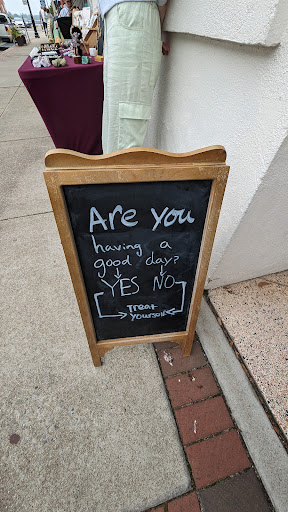 Are you
having a
good day?
YES NO
Treat
yourself